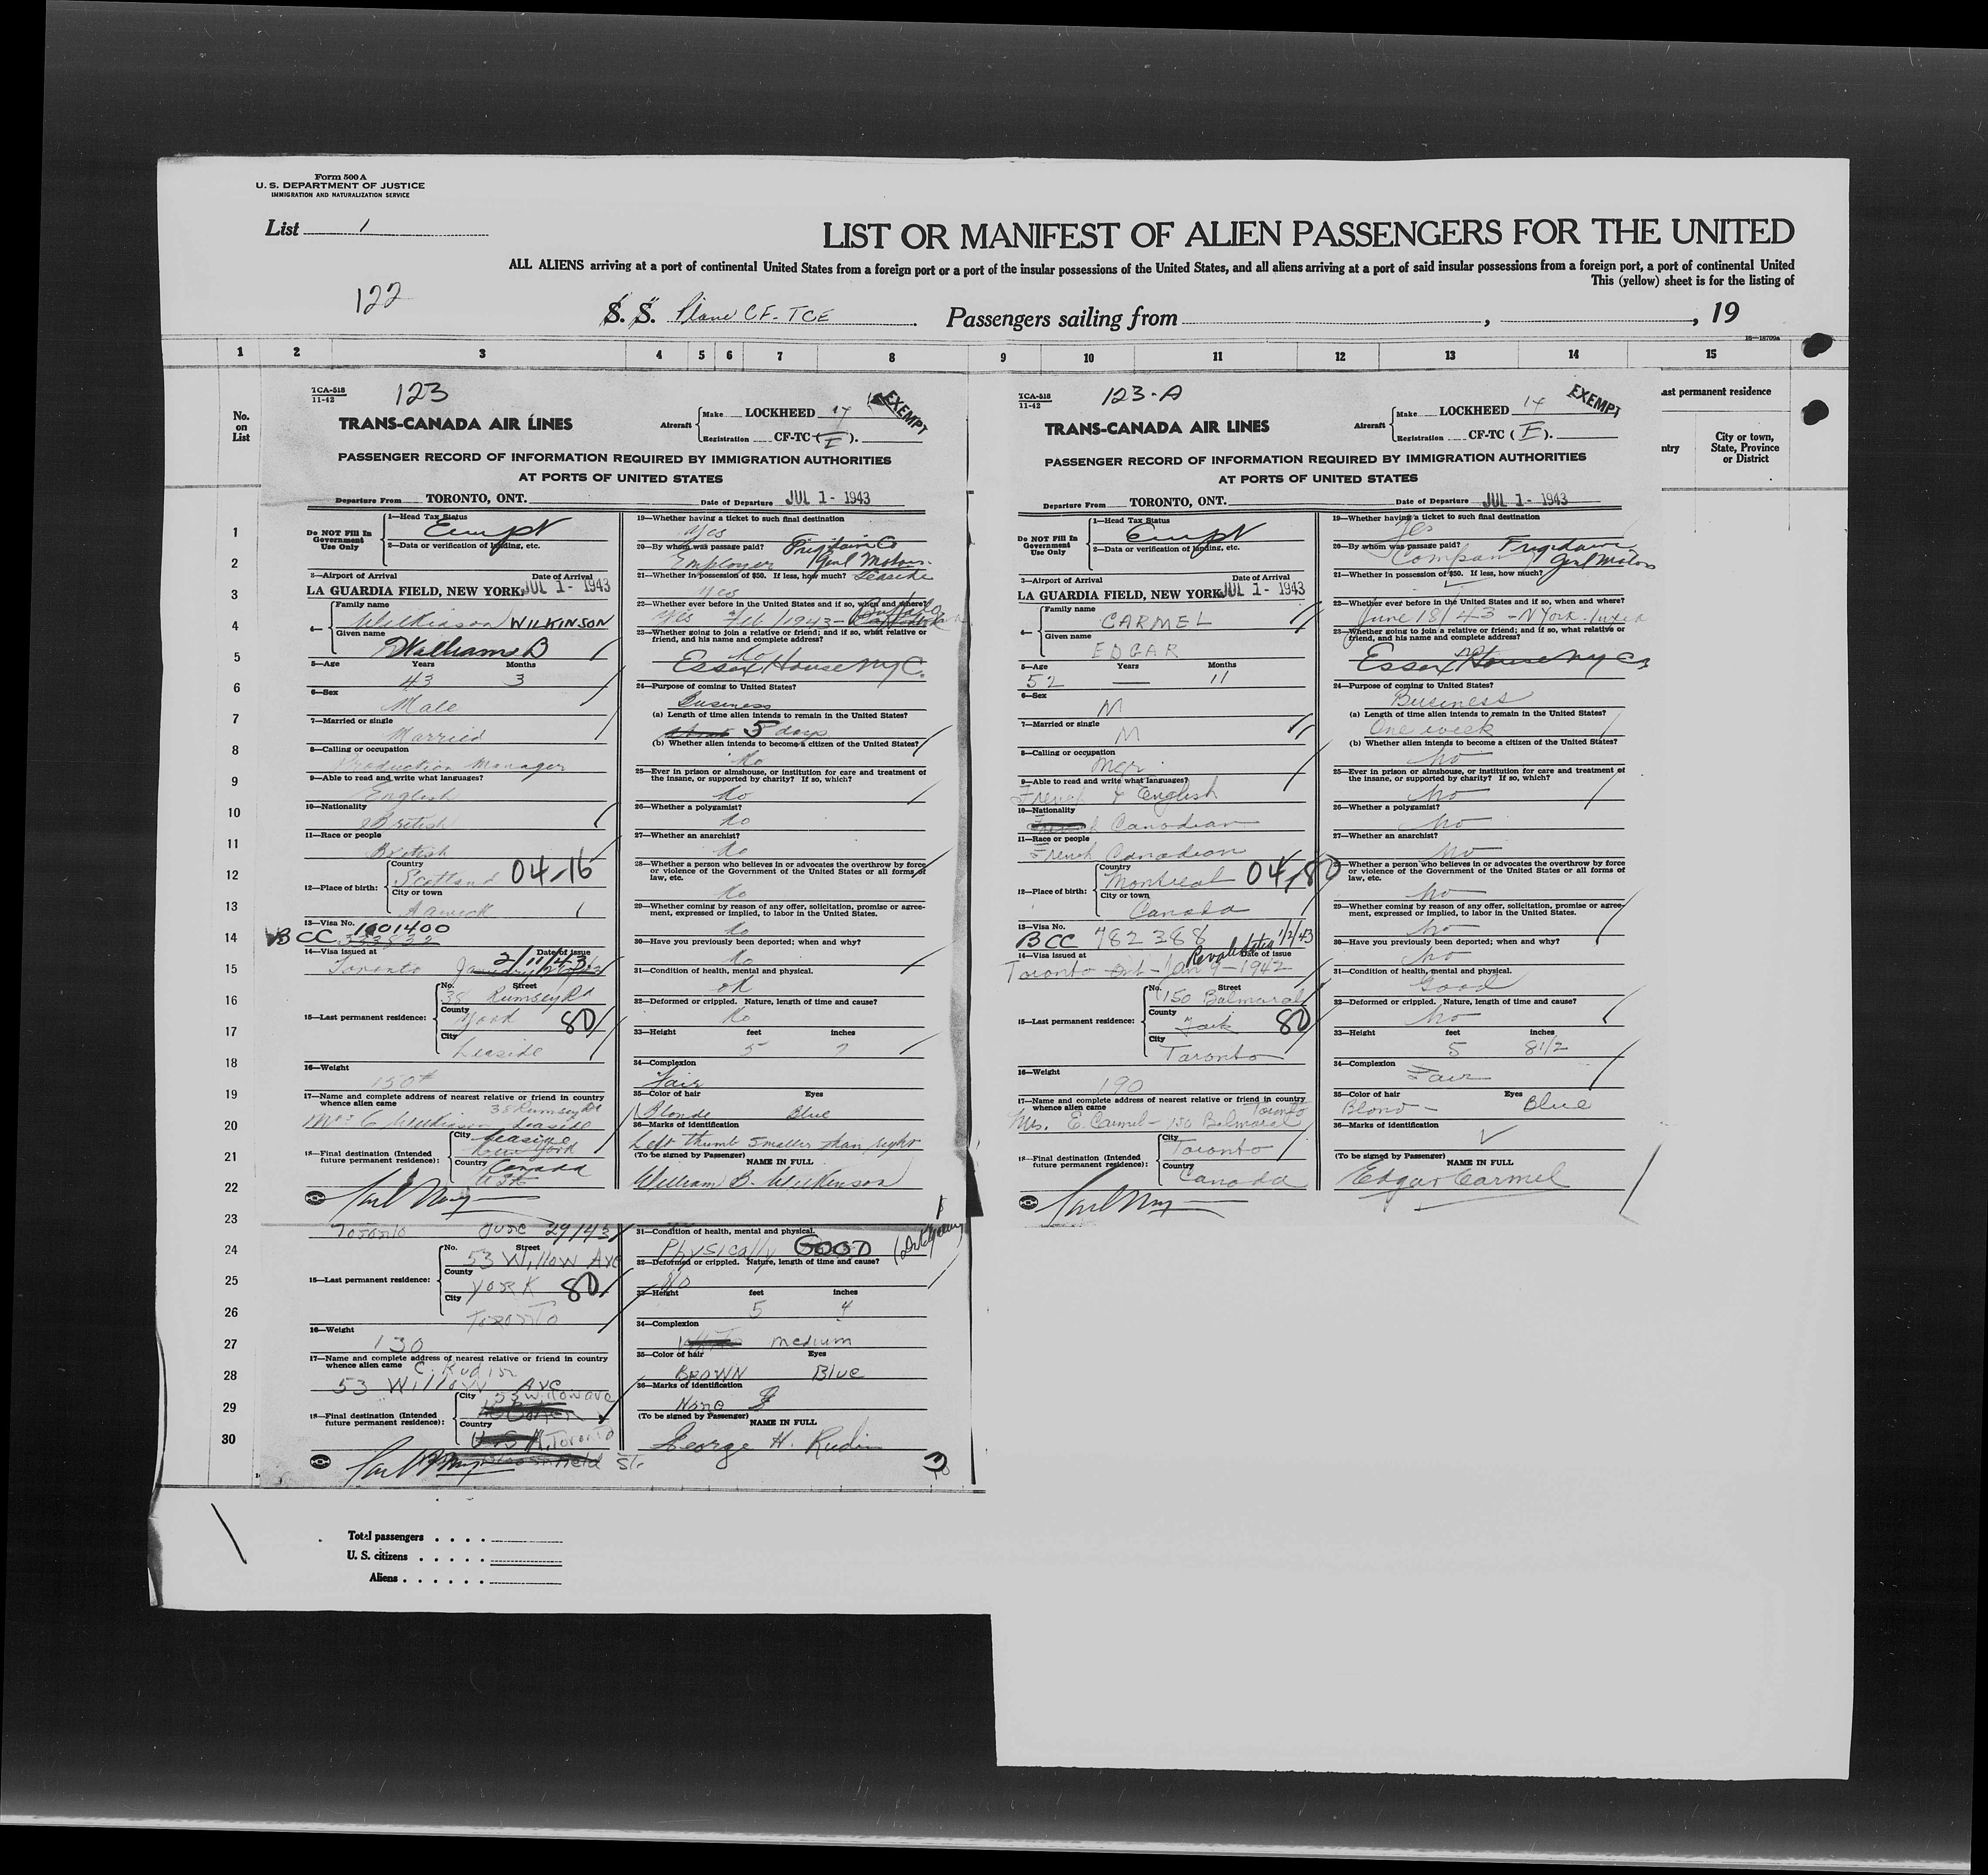 Form 500 A
U. S. DEPARTMENT OF JUSTICE
IMMIGRATION AND NATURALIZATION SERVICE
List 1
LIST OR MANIFEST OF ALIEN PASSENGERS FOR THE UNITED
ALL ALIENS arriving at a port of continental United States from a foreign port or a port of the insular possessions of the United States, and all aliens arriving at a port of said insular possessions from a foreign port, a port of continental United
This (yellow) sheet is for the listing of
122
S. S. Plane CF-TCE Passengers sailing from , , 19
16—18709a
1 2 3 4 5 6 7 8 9 10 11 12 13 14 15
No.
on
List
ast permanent residence
ntry
City or town,
State, Province
or District
1
2
3
4
5
6
7
8
9
10
11
12
13
14
15
16
17
18
19
20
21
22
23
24
25
26
27
28
29
30
TCA-518
11-42
123
TRANS-CANADA AIR LINES
Aircraft
Make LOCKHEED 14
Registration CF-TC (E).
EXEMPT
PASSENGER RECORD OF INFORMATION REQUIRED BY IMMIGRATION AUTHORITIES
AT PORTS OF UNITED STATES
Departure From TORONTO, ONT. Date of Departure JUL 1 - 1943
Do NOT Fill In
Government
Use Only
1—Head Tax Status
Exmpt
2—Data or verification of landing, etc.
3—Airport of Arrival Date of Arrival
LA GUARDIA FIELD, NEW YORK JUL 1 - 1943
4—
Family name
Wilkinson WILKINSON
Given name
William B
5—Age Years Months
43 3
6—Sex
Male
7—Married or single
Married
8—Calling or occupation
Production Manager
9—Able to read and write what languages?
English
10—Nationality
British
11—Race or people
British
12—Place of birth:
Country
Scotland 04-16
City or town
13—Visa No. 1001400
BCC
14—Visa issued at Date of issue
2/11/43
Toronto
15—Last permanent residence:
No. Street
38 Rumsey Rd
County
York 80
City
Leaside
16—Weight
150#
17—Name and complete address of nearest relative or friend in country
whence alien came 38 Rumsey Rd
Mrs C Wilkinson Leaside
18—Final destination (Intended
future permanent residence):
City Leaside
New York
Country Canada
USA
19—Whether having a ticket to such final destination
Yes
20—By whom was passage paid? Frigidaire Co
Employer Genl Motors
21—Whether in possession of $50. If less, how much? Leaside
Yes
22—Whether ever before in the United States and if so, when and where?
Yes Feb/1943 - Buffalo
23—Whether going to join a relative or friend; and if so, what relative or
friend, and his name and complete address?
No
Essex House NYC.
24—Purpose of coming to United States?
Business
(a) Length of time alien intends to remain in the United States?
5 days
(b) Whether alien intends to become a citizen of the United States?
No
25—Ever in prison or almshouse, or institution for care and treatment of
the insane, or supported by charity? If so, which?
No
26—Whether a polygamist?
No
27—Whether an anarchist?
No
28—Whether a person who believes in or advocates the overthrow by force
or violence of the Government of the United States or all forms of
law, etc.
No
29—Whether coming by reason of any offer, solicitation, promise or agree-
ment, expressed or implied, to labor in the United States.
No
30—Have you previously been deported; when and why?
No
31—Condition of health, mental and physical.
ok
32—Deformed or crippled. Nature, length of time and cause?
No
33—Height feet inches
5 7
34—Complexion
Fair
35—Color of hair Eyes
Blonde Blue
36—Marks of identification
Left thumb smaller than right
(To be signed by Passenger)
NAME IN FULL
William B. Wilkinson
TCA-518
11-42
123-A
TRANS-CANADA AIR LINES
Aircraft
Make LOCKHEED 14
Registration CF-TC (E).
EXEMPT
PASSENGER RECORD OF INFORMATION REQUIRED BY IMMIGRATION AUTHORITIES
AT PORTS OF UNITED STATES
Departure From TORONTO, ONT. Date of Departure JUL 1 - 1943
Do NOT Fill In
Government
Use Only
1—Head Tax Status
Exmpt
2—Data or verification of landing, etc.
3—Airport of Arrival Date of Arrival
LA GUARDIA FIELD, NEW YORK JUL 1 - 1943
4—
Family name
CARMEL
Given name
EDGAR
5—Age Years Months
52 — 11
6—Sex
M
7—Married or single
M
8—Calling or occupation
Mgr.
9—Able to read and write what languages?
French & English
10—Nationality
French Canadian
11—Race or people
French Canadian
12—Place of birth:
Country
Montreal 04-80
City or town
Canada
13—Visa No.
BCC 782388 1/2/43
14—Visa issued at Revalidated Date of issue
Toronto Ont - Jan 9 - 1942
15—Last permanent residence:
No. Street
150 Balmoral
County
York 80
City
Toronto
16—Weight
190
17—Name and complete address of nearest relative or friend in country
whence alien came Toronto
Mrs. E. Carmel - 150 Balmoral
18—Final destination (Intended
future permanent residence):
City
Toronto
Country
Canada
19—Whether having a ticket to such final destination
Yes
20—By whom was passage paid? Frigidaire
Company Genl Motors
21—Whether in possession of $50. If less, how much?
22—Whether ever before in the United States and if so, when and where?
June 18/43 - N York
23—Whether going to join a relative or friend; and if so, what relative or
friend, and his name and complete address?
no
Essex House NYC
24—Purpose of coming to United States?
Business
(a) Length of time alien intends to remain in the United States?
One week
(b) Whether alien intends to become a citizen of the United States?
No
25—Ever in prison or almshouse, or institution for care and treatment of
the insane, or supported by charity? If so, which?
No
26—Whether a polygamist?
No
27—Whether an anarchist?
No
28—Whether a person who believes in or advocates the overthrow by force
or violence of the Government of the United States or all forms of
law, etc.
No
29—Whether coming by reason of any offer, solicitation, promise or agree-
ment, expressed or implied, to labor in the United States.
No
30—Have you previously been deported; when and why?
No
31—Condition of health, mental and physical.
Good
32—Deformed or crippled. Nature, length of time and cause?
No
33—Height feet inches
5 8 1/2
34—Complexion
Fair
35—Color of hair Eyes
Blond - Blue
36—Marks of identification
(To be signed by Passenger)
NAME IN FULL
Edgar Carmel
Toronto June 29/43
15—Last permanent residence:
No. Street
53 Willow Ave
County
York 80
City
Toronto
16—Weight
130
17—Name and complete address of nearest relative or friend in country
whence alien came C. Rudin
53 Willow Ave
18—Final destination (Intended
future permanent residence):
City 53 Willow Ave
Country
USA, Toronto
St.
31—Condition of health, mental and physical.
Physically GOOD
32—Deformed or crippled. Nature, length of time and cause?
No
33—Height feet inches
5 4
34—Complexion
medium
35—Color of hair Eyes
BROWN Blue
36—Marks of identification
None
(To be signed by Passenger)
NAME IN FULL
George H. Rudin
Total passengers
U. S. citizens
Aliens